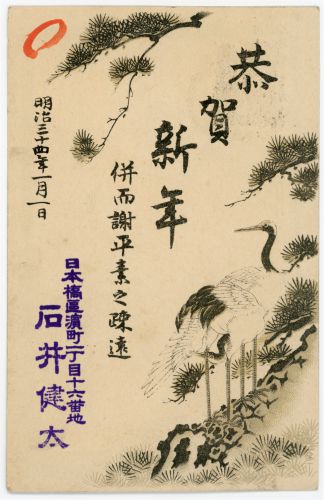 恭賀新年
併而謝平素之疎遠
明治三十四年一月一日
日本橋區濱町二丁目十六番地
石井健太